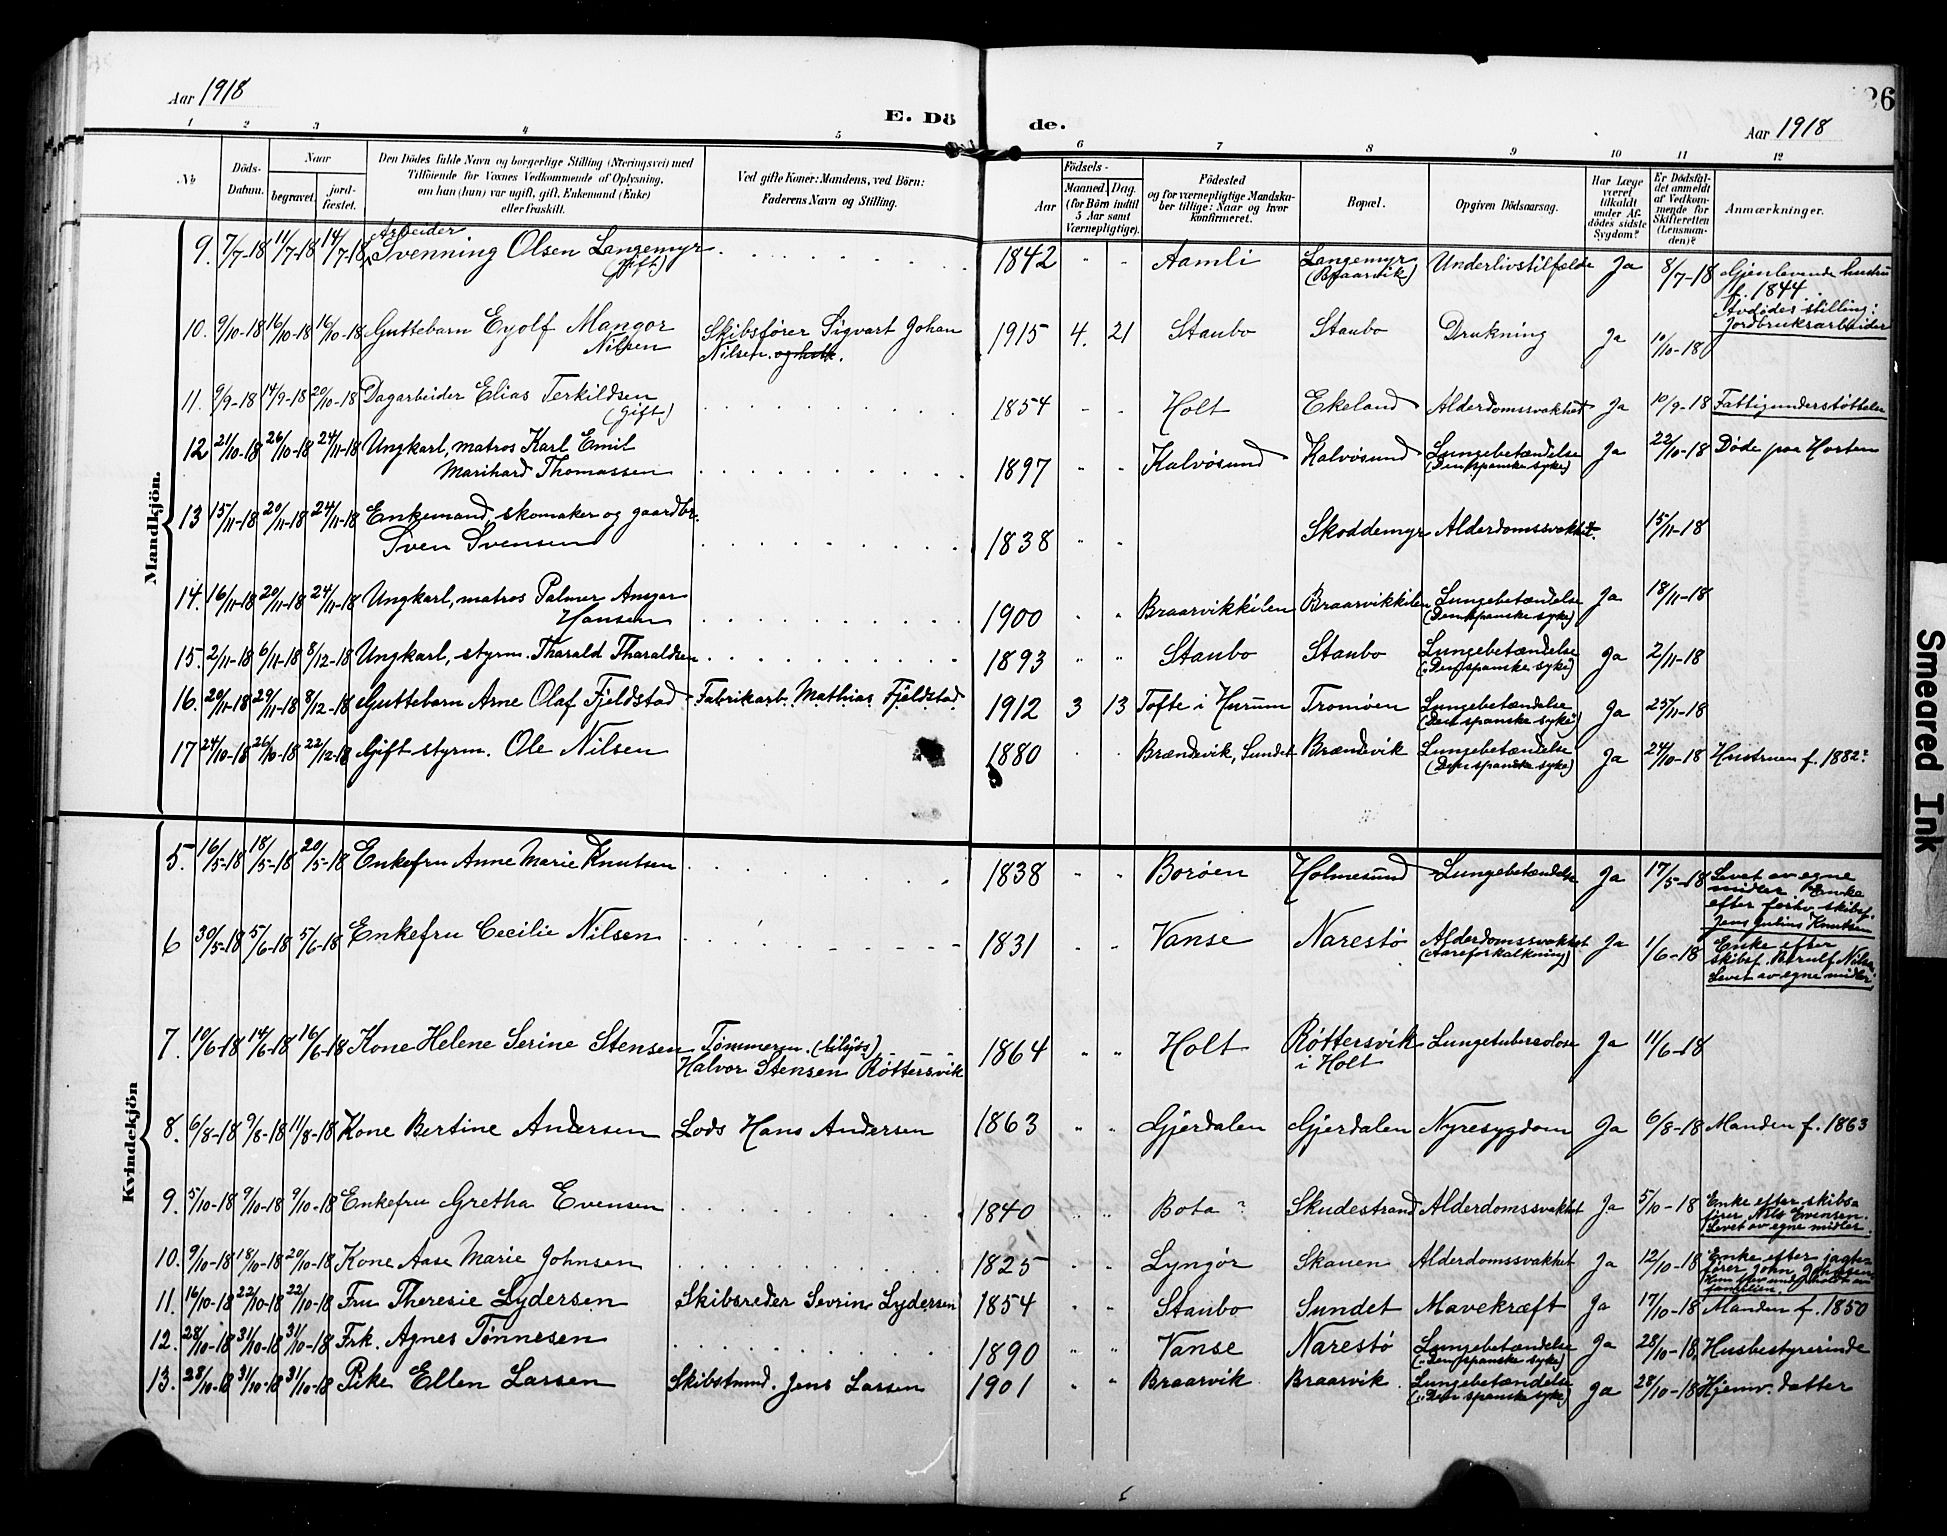 Aar 1918
E. Dö de.
Aar 1918
26
1 2 3 4 5 6 7 8 9 10 11 12
No
Döds-Datum.
Naar
begravet. jord-fæstet.
Den Dödes fulde Navn og borgerlige Stilling (Næringsvei) med
Tilföiende for Voxnes Vedkommende af Oplysning,
om han (hun) var ugift, gift, Enkemand (Enke)
eller fraskilt.
Ved gifte Koner: Mandens, ved Börn:
Faderens Navn og Stilling.
Födsels-
Aar
Maaned. Dag.
(for Börn indtil
5 Aar samt
Værnepligtige).
Födested
og for værnepligtige Mandska-
ber tillige: Naar og hvor
konfirmeret.
Bopæl.
Opgiven Dödsaarsag.
Har Læge
været
tilkaldt
under Af-
dödes sidste
Sygdom?
Er Dödsfal-
det anmeldt
af Vedkom-
mende for
Skifteretten
(Lensman-
den)?
Anmærkninger.
Mandkjön.
9. 7/7-18 11/7-18 14/7-18 Arbeider Svenning Olsen Langemyr (gift) 1842 " " Aamli Langemyr (Braarvik) Underlivstilfælde Ja 8/7-18 Gjenlevende hustru f. 1844. Avdødes stilling: Jordbruksarbeider
10. 9/10-18 16/10-18 16/10-18 Guttebarn Eyolf Mangor Nilsen Skibsfører Sigvart Johan Nilsen 1915 4. 21 Staubo Staubo Drukning Ja 10/10-18
11. 9/9-18 14/9-18 20/10-18 Dagarbeider Elias Terkildsen (Gift) 1854 " " Holt Ekeland Alderdomssvakhed Ja 10/9-18 Fattigunderstøttelse
12 21/10-18 26/10-18 24/11-18 Ungkarl, matros Karl Emil Marihard Thomassen 1897 " " Kalvøsund Kalvøsund Lungebetændelse (Den spanske syke) Ja 22/10-18 Døde paa Horten
13 15/11-18 20/11-18 24/11-18 Enkemand, skomaker og gaardbr. Sven Svensen 1838 " " Skoddemyr Alderdomssvakhet. 15/11-18
14. 16/11-18 20/11-18 24/11-18 Ungkarl, matros Palmer Ansgar Hansen 1900 " " Braarvikkilen Braarvikkilen Lungebetændelse (Den spanske syke) Ja 18/11-18
15. 2/11-18 6/11-18 8/12-18 Ungkarl, styrm. Tharald Tharaldsen 1893 " " Staubo Staubo Lungebetændelse ("Den spanske syke) Ja 2/11-18
16. 20/11-18 29/11-18 8/12-18 Guttebarn Arne Olaf Fjeldstad Fabrikarb. Mathias Fjeldstad 1912 3 13 Tofte i Hurum Tromøen Lungebetændelse (Den spanske syke) Ja 25/11-18
17 24/10-18 26/10-18 22/12-18 Gift styrm. Ole Nilsen 1880 " " Brændevik, Sundet Brændevik Lungebetændelse (Den spanske syke) Ja 24/10-18 Hustruen f. 1882?
Kvindekjön
5. 16/5-18 18/5-18 20/5-18 Enkefru Anne Marie Knutsen 1838 " " Borøen Holmesund Lungebetændelse Ja 17/5-18 Levet av egne midler. Enke efter forhv. skibsf. Jens Julius Knutsen
6 30/5-18 5/6-18 5/6-18 Enkefru Cecilie Nilsen 1831 " " Vanse Narestø Alderdomssvakhet (Aareforkalkning) Ja 1/6-18 Enke efter skibsf. Berulf Nilsen. Levet av egne midler
7. 10/6-18 14/6-18 16/6-18 Kone Helene Serine Stensen Tømmerm. (tilsjøs) Halvor Stensen Røttersvik 1864 " " Holt Røttersvik i Holt Lungetuberculose Ja 11/6-18
8. 6/8-18 9/8-18 11/8-18 Kone Bertine Andersen Lods Hans Andersen 1863 " " Gjerdalen Gjerdalen Nyresygdom Ja 6/8-18 Manden f. 1863
9. 5/10-18 9/10-18 9/10-18 Enkefru Gretha Evensen 1840 " " Bota ? Skudestrand Alderdomssvakhet Ja 5/10-18 Enke efter skibsfører Nils Evensen. Levet av egne midler.
10. 9/10-18 18/10-18 20/10-18 Kone Aase Marie Johnsen 1825 Lyngør Skauen Alderdomssvakhet Ja 12/10-18 Enke efter jagtefører John Johnsen familien.
11. 16/10-18 22/10-18 22/10-18 Fru Theresie Lydersen Skibsreder Sevrin Lydersen 1854 " " Staubo Sundet Mavekræft Ja 17/10-18 Manden f. 1850
12. 28/10-18 31/10-18 31/10-18 Frk. Agnes Tønnesen 1890 " " Vanse Narestø Lungebetændelse ("Den spanske syke) Ja 28/10-18, Husbestyrerinde
13. 28/10-18 31/10-18 31/10-18 Pike Ellen Larsen Skibstmd. Jens Larsen 1901 " " Braarvik Braarvik Lungebetændelse ("Den spanske syke) Ja 28/10-18 Hjemv. datter
Smeared Ink